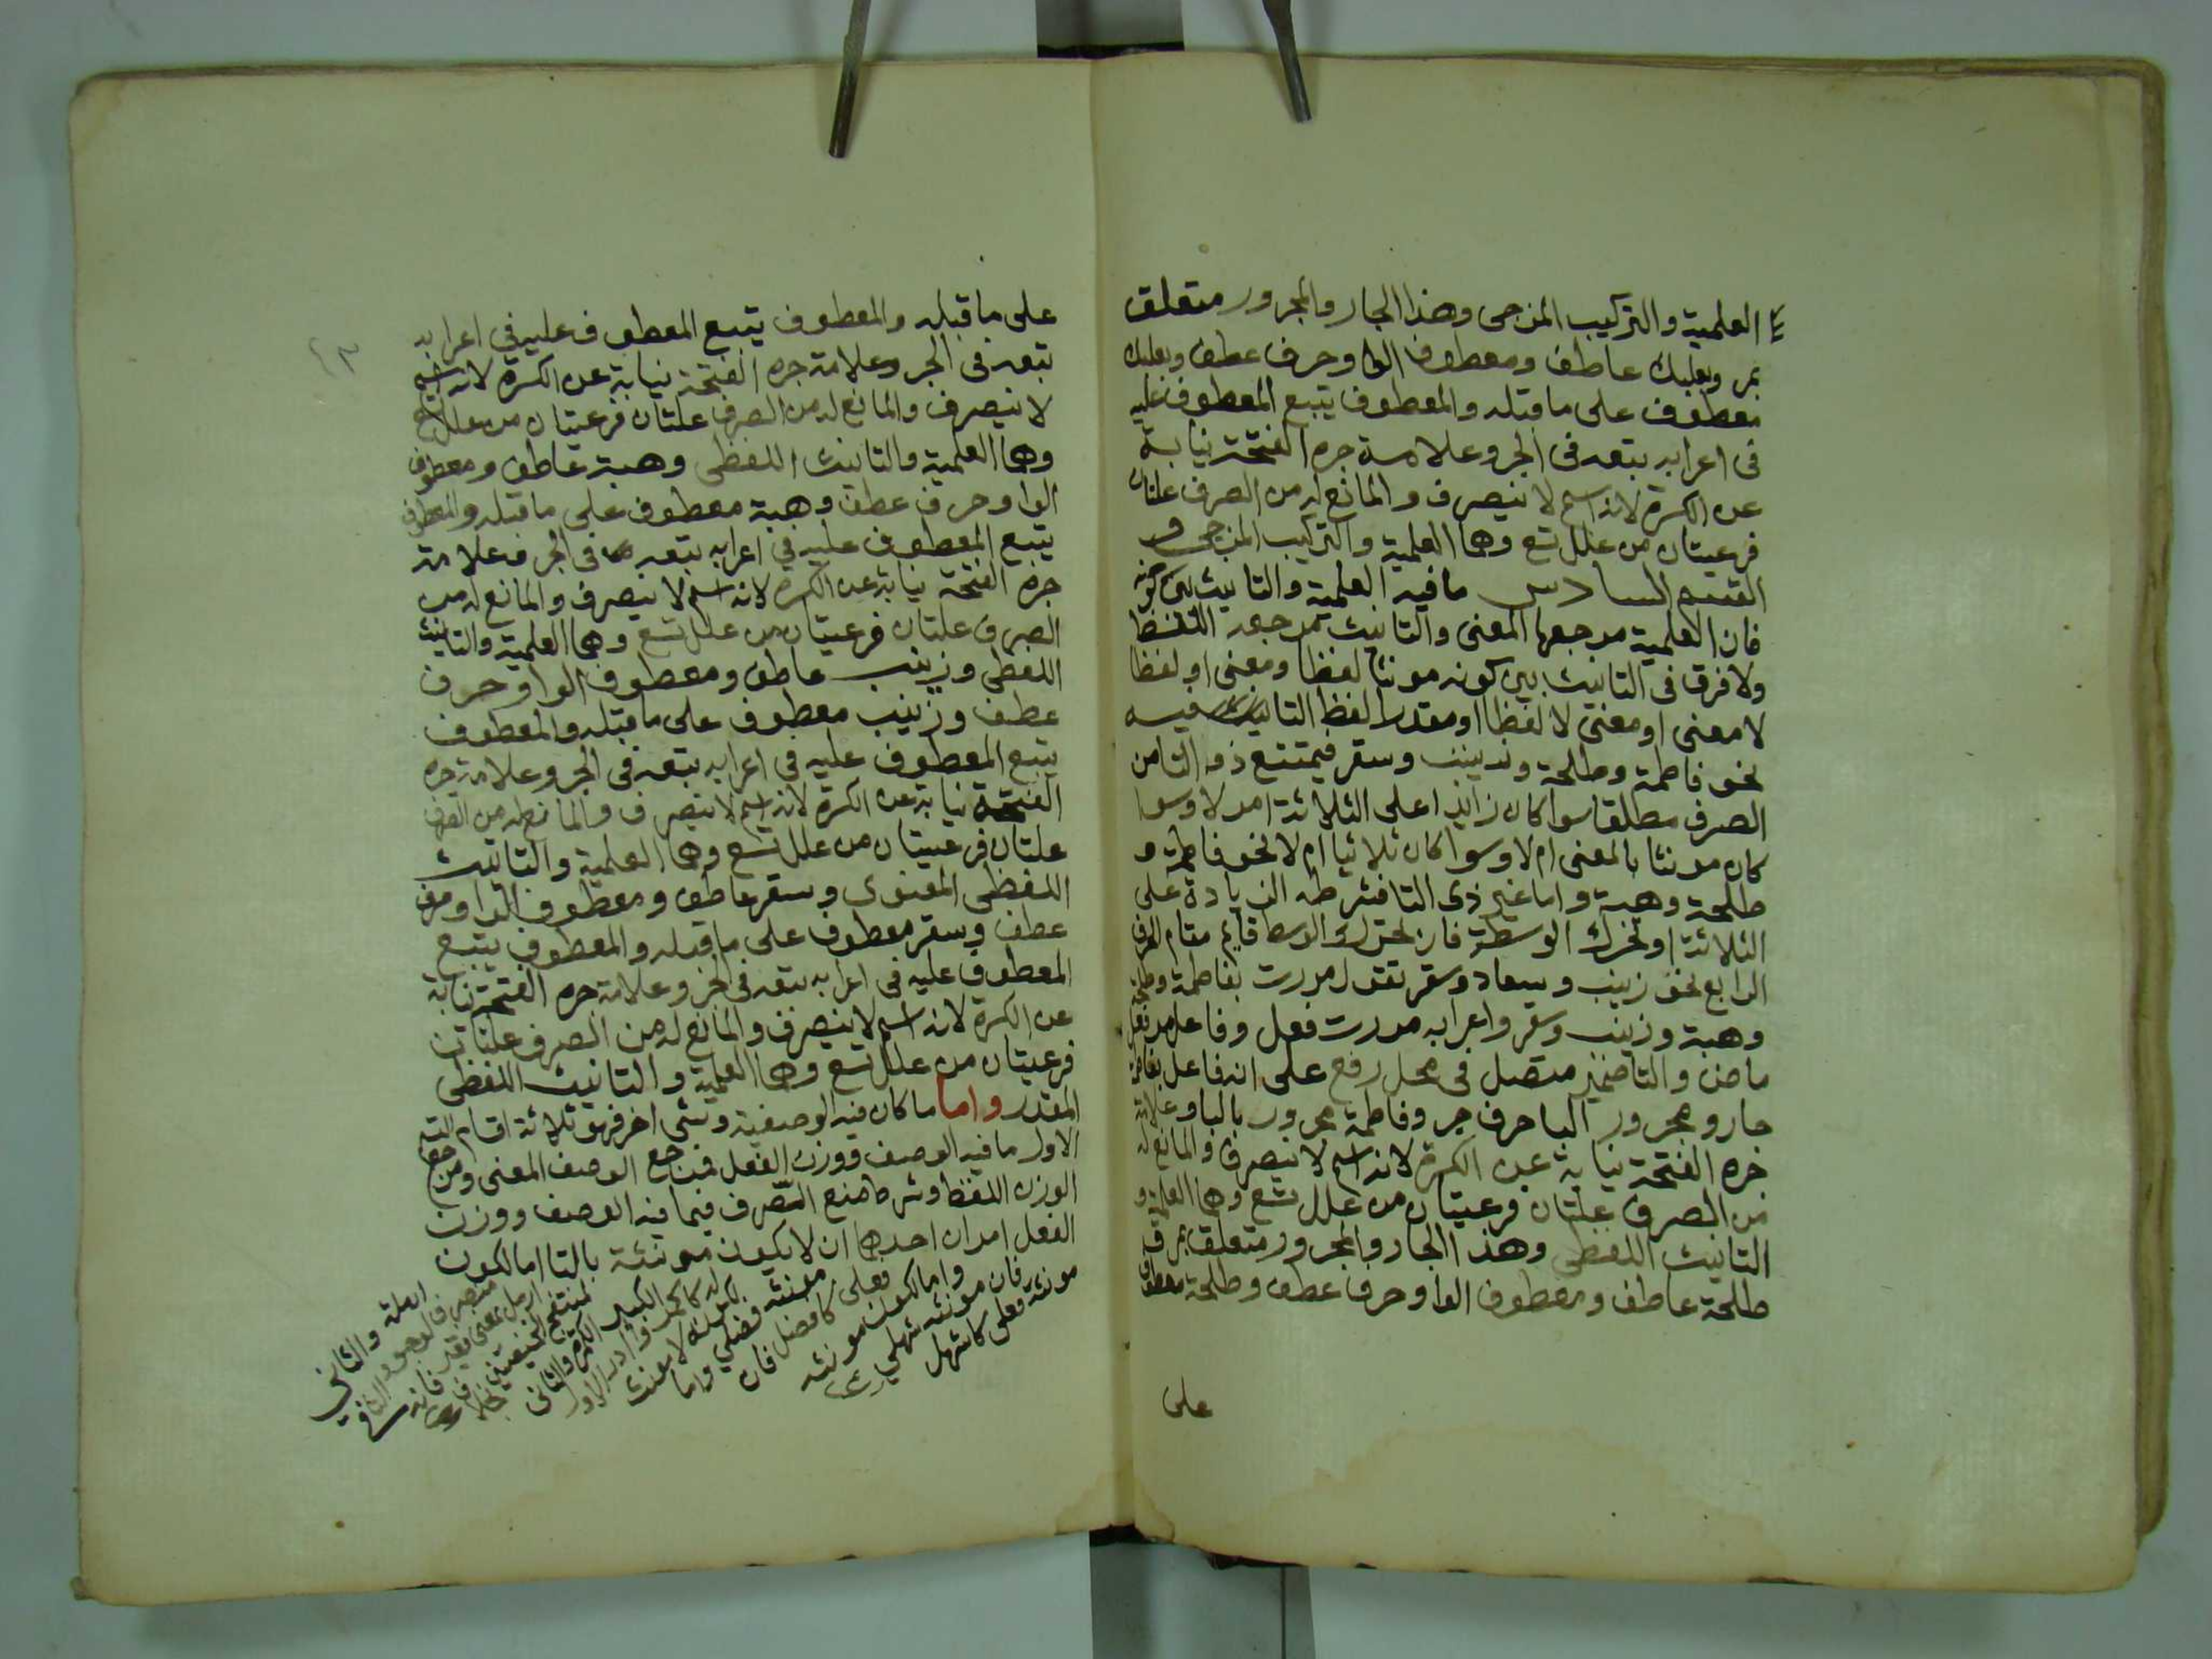 العلمية والتركيب المزجى وهذا الجار والمجرور متعلق
بمر وبعلبك عاطف ومعطوف الواو حرف عطف وبعلبك
معطوف على ما قبله والمعطوف يتبع المعطوف عليه
فى اعرابه يتبعه فى الجر وعلامة جره الفتحة نيابة
عن الكسرة لانه اسم لا ينصرف والمانع له من الصرف علتان
فرعيتان من علل تسع وهما العلمية والتركيب المزجى و
القسم السادس ما فيه العلمية والتانيث بلى كونه
فان العلمية مرجعها المعنى والتانيث مرجعه اللفظ
ولا فرق فى التانيث بين كونه مونثا لفظا ومعنى او لفظا
لا معنى او معنى لا لفظا او مقدرا لفظ التانيث فيه
نحو فاطمة وطلحة وزينب وسقر فيمتنع ذو التا من
الصرف مطلقا سوا كان زايدا على الثلاثة ام لا وسوا
كان مونثا بالمعنى ام لا وسوا كان ثلاثيا ام لا نحو فاطمة و
طلحة وهبة واما غير ذى التا فشرطه الزيادة على
الثلاثة او تحرك الوسط فان تحرك الوسط قايم مقام الحرف
الرابع نحو زينب وسعاد وسقر تقول مررت بفاطمة وطلحة
وهبة وزينب وسقر واعرابه مررت فعل وفاعل مر فعل
ماض والتا ضمير متصل فى محل رفع على انه فاعل بفاطمة
جار ومجرور البا حرف جر وفاطمة مجرور بالبا وعلامة
جره الفتحة نيابة عن الكسرة لانه اسم لا ينصرف والمانع له
من الصرف علتان فرعيتان من علل تسع وهما العلمية و
التانيث اللفظى وهذا الجار والمجرور متعلق بمر و
طلحة عاطف ومعطوف الواو حرف عطف وطلحة معطوف
على
على ما قبله والمعطوف يتبع المعطوف عليه فى اعرابه
تبعه فى الجر وعلامة جره الفتحة نيابة عن الكسرة لانه اسم
لا ينصرف والمانع له من الصرف علتان فرعيتان من علل تسع
وهما العلمية والتانيث اللفظى وهبة عاطف ومعطوف
الواو حرف عطف وهبة معطوف على ما قبله والمعطوف
يتبع المعطوف عليه فى اعرابه تبعه فى الجر وعلامة
جره الفتحة نيابة عن الكسرة لانه اسم لا ينصرف والمانع له من
الصرف علتان فرعيتان من علل تسع وهما العلمية والتانيث
اللفظى وزينب عاطف ومعطوف الواو حرف
عطف وزينب معطوف على ما قبله والمعطوف
يتبع المعطوف عليه فى اعرابه تبعه فى الجر وعلامة جره
الفتحة نيابة عن الكسرة لانه اسم لا ينصرف والمانع له من الصرف
علتان فرعيتان من علل تسع وهما العلمية والتانيث
اللفظى المعنوى وسقر عاطف ومعطوف الواو حرف
عطف وسقر معطوف على ما قبله والمعطوف يتبع
المعطوف عليه فى اعرابه تبعه فى الجر وعلامة جره الفتحة نيابة
عن الكسرة لانه اسم لا ينصرف والمانع له من الصرف علتان
فرعيتان من علل تسع وهما العلمية والتانيث اللفظى
المقدر واما ما كان فيه الوصفية وشى اخر فهو ثلاثة اقسام القسم
الاول ما فيه الوصف ووزن الفعل فمرجع الوصف المعنى ومرجع
الوزن اللفظ وشرط منع الصرف فيما فيه الوصف ووزن
الفعل امران احدهما ان لا يكون مونثه بالتا اما لكون
مونثه فعلى كاشهل
فان مونثه شهلى
واما لكون مونثه
فعلى كافضل فان
مونثه فضلى واما
لكونه لا مونث
له كاكمر وادر الاول
لكبير الكمرة والثانى
لمنتفخ الخصيتين بخلاف
ارمل بمعنى فقير فانه
منصرف لوجود التا فى
ارملة والثانى